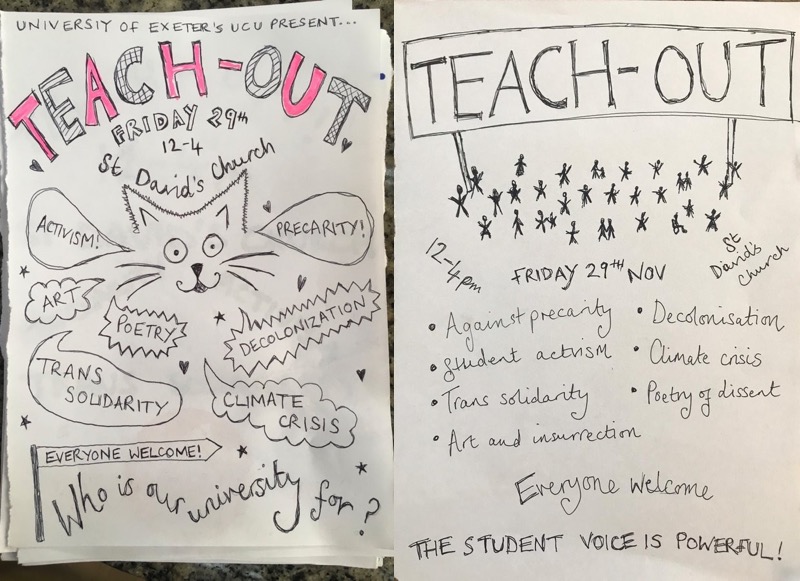 UNIVERSIY OF EXETER'S UCU PRESENT...
TEACH-OUT
FRIDAY 29th
12-4
St David's Church
ACTIVISM!
PRECARITY!
ART
POETRY
DECOLONIZATION
TRANS
SOLIDARITY
CLIMATE
CRISIS
EVERYONE WELCOME!
Who is our university for?
TEACH-OUT
12-4pm
FRIDAY 29TH NOV
St
David's
Church
• Against precarity
• Student activism
• Trans solidarity
• Art and insurrection
• Decolonisation
• Climate crisis
• Poetry of dissent
Everyone Welcome
THE STUDENT VOICE IS POWERFUL!